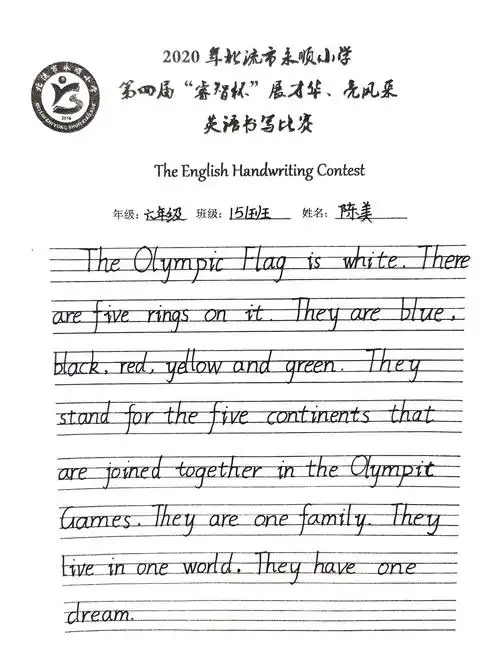 2020年北流市永顺小学
第四届“睿智杯”展才华、亮风采
英语书写比赛
The English Handwriting Contest
年级：六年级 班级：151班 姓名：陈美
The Olympic Flag is white. There
are five rings on it. They are blue,
black, red, yellow and green. They
stand for the five continents that
are joined together in the Olympic
Games. They are one family. They
live in one world. They have one
dream.